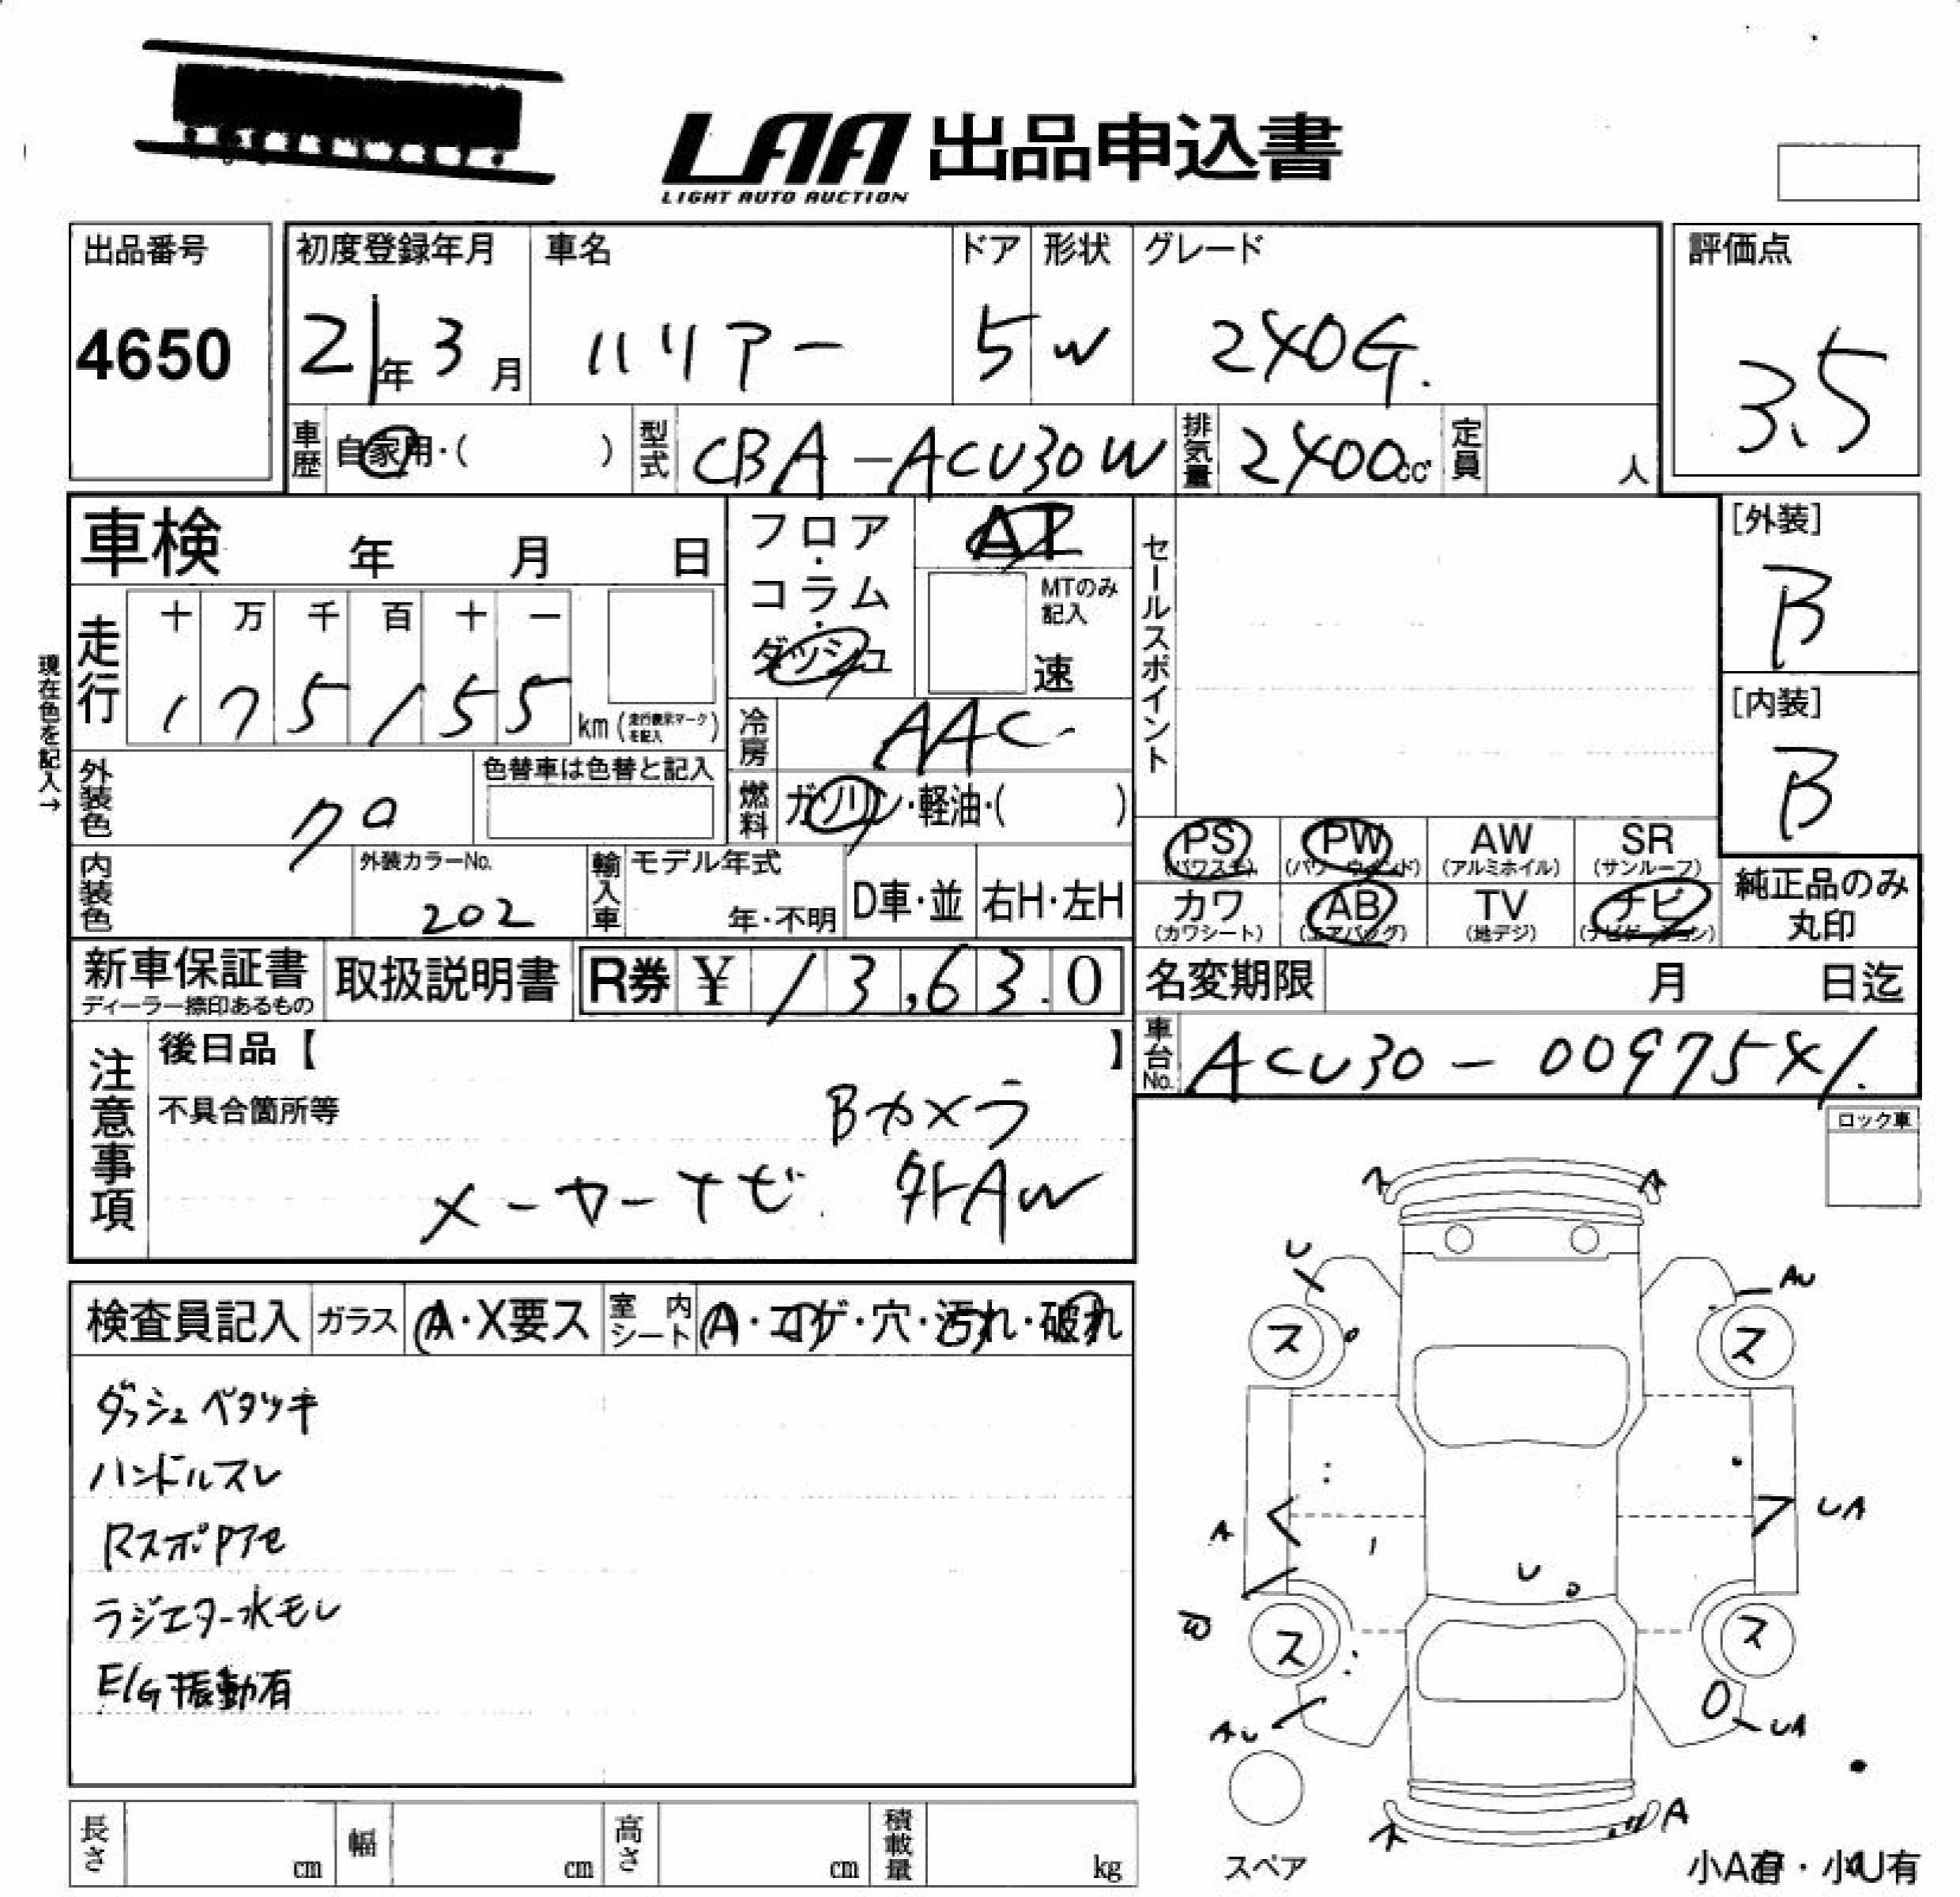 LAA 出品申込書
LIGHT AUTO AUCTION
出品番号 初度登録年月 車名 ドア 形状 グレード 評価点
4650 21年3月 ハリアー 5 W 240G. 3.5
車歴 自家用・( ) 型式 CBA-ACU30W 排気量 2400cc 定員 人
車検 年 月 日 フロア・コラム・ダッシュ AT セールスポイント [外装]
B
MTのみ記入 速
現在色を記入→
走行 十 万 千 百 十 一
1 7 5 1 5 5 km (走行表示マークを記入) 冷房 AAC [内装]
B
外装色 クロ 色替車は色替と記入 燃料 ガソリン・軽油・( )
PS (パワステ) PW (パワーウィンド) AW (アルミホイル) SR (サンルーフ)
内装色 外装カラーNo. 202 輸入車 モデル年式 年・不明 D車・並 右H・左H
カワ (カワシート) AB (エアバッグ) TV (地デジ) ナビ (ナビゲーション) 純正品のみ丸印
新車保証書 ディーラー捺印あるもの 取扱説明書 R券 ¥ 13,630 名変期限 月 日迄
注意事項 後日品【 】 車台No. ACU30-0097541.
不具合箇所等 Bカメラ ロック車
メーカーナビ 外AW
検査員記入 ガラス A・X要ス 室内シート A・コゲ・穴・汚れ・破れ
ダッシュベタツキ
ハンドルスレ
RスポPアセ
ラジエター水モレ
E/G振動有
A A
U AU
ス ス
A UA
U
ス ス
AU UA
A A
スペア 小A有・小U有
長さ cm 幅 cm 高さ cm 積載量 kg